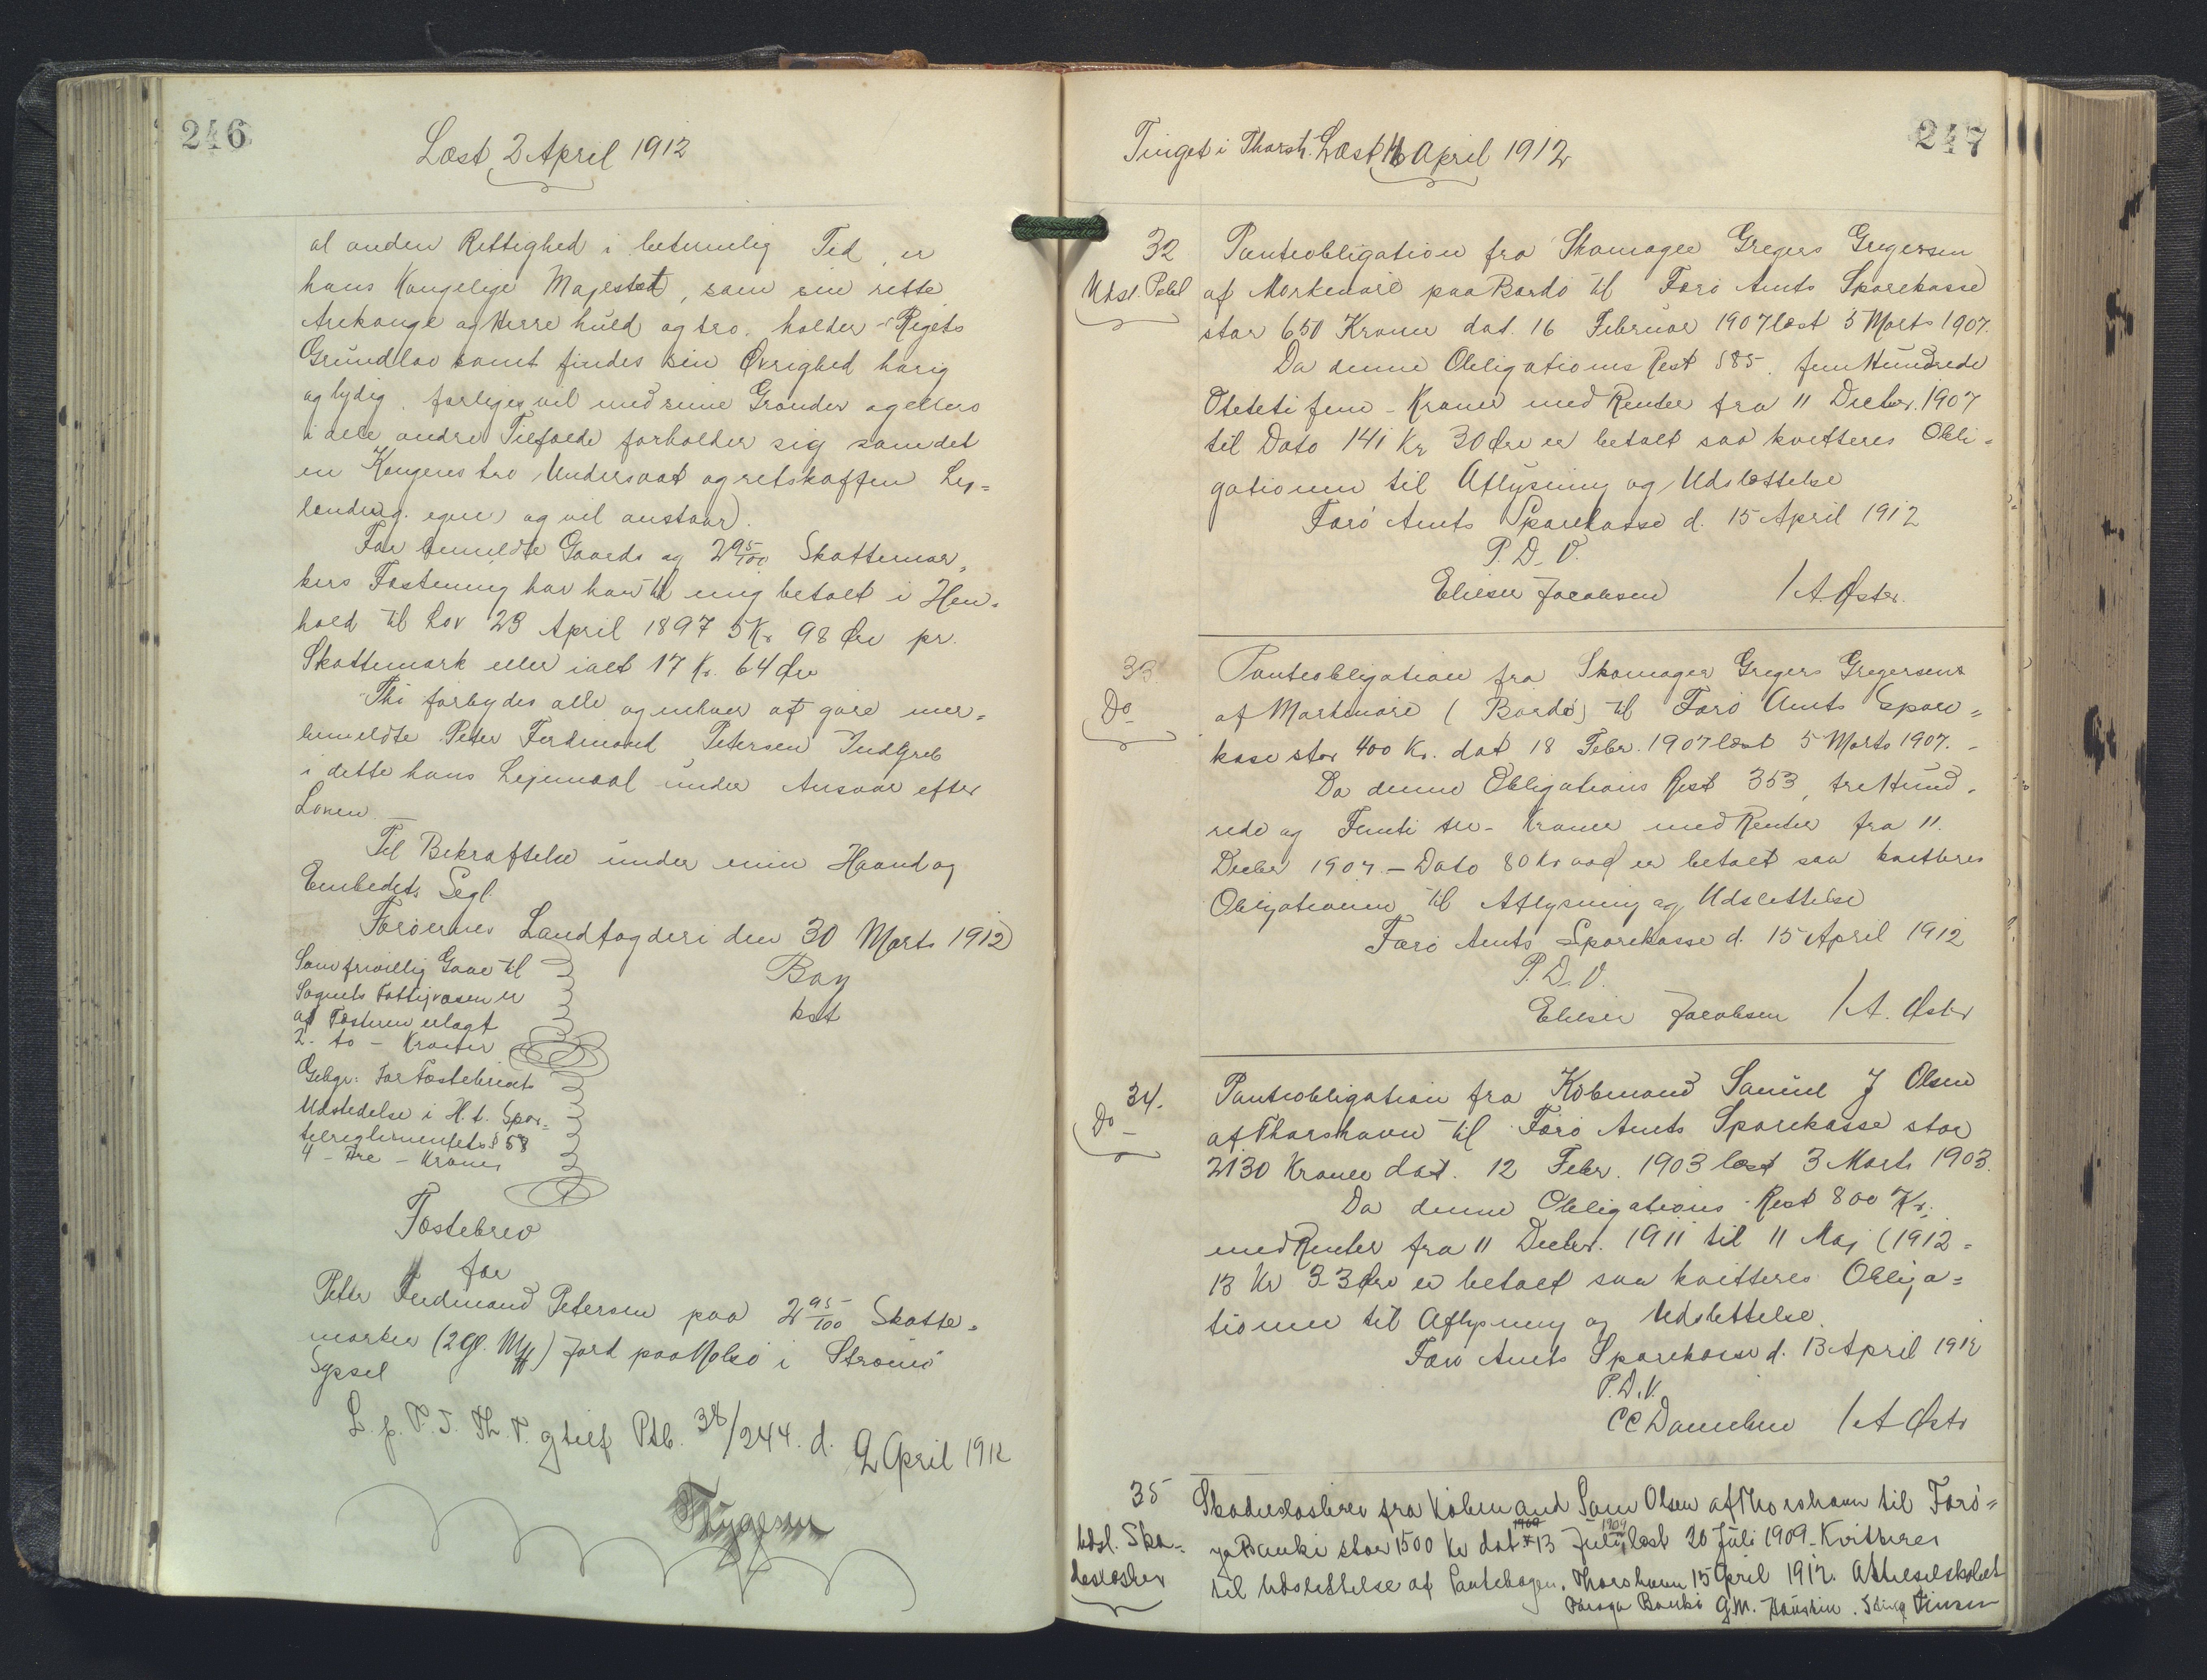 246
Læst 2 April 1912
al anden Rettighed i betimelig Tid, er
hans Kongelige Majestæt, som sin rette
Arvekonge og Herre huld og tro, holder Rigets
Grundlov samt findes sin Øvrighed hørig
og lydig, forliges vel med sine Grander og ellers
i alle andre Tilfælde forholder sig som det
en Kongens tro Undersaat og retskaffen Lej=
lænding egner og vel anstaar.
For bemeldte Gaards og 2 95/100 Skattemar=
kers Fæstening har han til mig betalt i Hen=
hold til Lov 23 April 1897 5 Kr 98 Øre pr.
Skattemark eller ialt 17 Kr. 64 Øre
Thi forbydes alle og enhver at gøre mer=
bemeldte Peter Ferdinand Petersen Indgreb
i dette hans Lejemaal under Ansvar efter
Loven. —
Til Bekræftelse under min Haand og
Embedets Segl.
Færøernes Landfogderi den 30 Marts 1912
Bay
kst
Som frivillig Gave til
Sognets Fattigvæsen er
af Fæsteren erlagt
2 - to - Kroner
Gebyr: For Fæstebrevets
Udstedelse i H. t. Spor=
telreglementets § 58
4 - Fire - Kroner
Fæstebrev
for
Peter Ferdinand Petersen paa 2 95/100 Skatte=
marker (2 Gl. Mk) Jord paa Nolsø i Strømø
Syssel
L. p. V. T. Th. V. g tilf Ptb. 38/244. d. 2 April 1912
Thygesen
247
Tinget i Thorsh. Læst 16 April 1912
32
Udsl. Pobl
Panteobligation fra Skomager Gregers Gregersen
af Morkenøre paa Bordø til Færø Amts Sparekasse
stor 650 Kroner dat. 16 Februar 1907 læst 5 Marts 1907.
Da denne Obligations Rest 585. fem Hundrede
Otteti fem - Kroner med Renter fra 11 Decbr. 1907
til Dato 141 Kr 30 Øre er betalt saa kvitteres Obli=
gationen til Aflysning og Udslettelse
Færø Amts Sparekasse d. 15 April 1912
P. D. V.
Elieser Jacobsen / A. Øster.
33
Do
Panteobligation fra Skomager Gregers Gregersen
af Morkenøre (Bordø) til Færø Amts Spare=
kasse stor 400 Kr. dat 18 Febr. 1907 læst 5 Marts 1907. -
Da denne Obligations Rest 353, tre Hund=
rede og Femti tre - Kroner med Renter fra 11.
Decbr 1907 - Dato 80 Kr er betalt saa kvitteres
Obligationen til Aflysning og Udslettelse
Færø Amts Sparekasse d. 15 April 1912
P. D. V.
Elieser Jacobsen / A. Øster
34.
Do
Panteobligation fra Købmand Samuel J Olsen
af Thorshavn til Færø Amts Sparekasse stor
2130 Kroner dat. 12 Febr. 1903 læst 3 Marts 1903.
Da denne Obligations Rest 800 Kr.
med Renter fra 11 Decbr. 1911 til 11 Maj (1912 =
13 Kr 33 Øre er betalt saa kvitteres Obliga=
tionen til Aflysning og Udslettelse.
Færø Amts Sparekasse d. 13 April 1912
P. D. V.
C C Danielsen / A Øster
35
Udsl. Ska-
desløsbrev
Skadesløsbrev fra Købmand Sam Olsen af Thorshavn til Førø=
ya Banki stor 1500 Kr dat 13 Juli 1909 læst 20 Juli 1909. Kvitteres
til Udslettelse af Pantebogen. Thorshavn 15 April 1912. Aktieselskabet
Føroya Banki G.M.